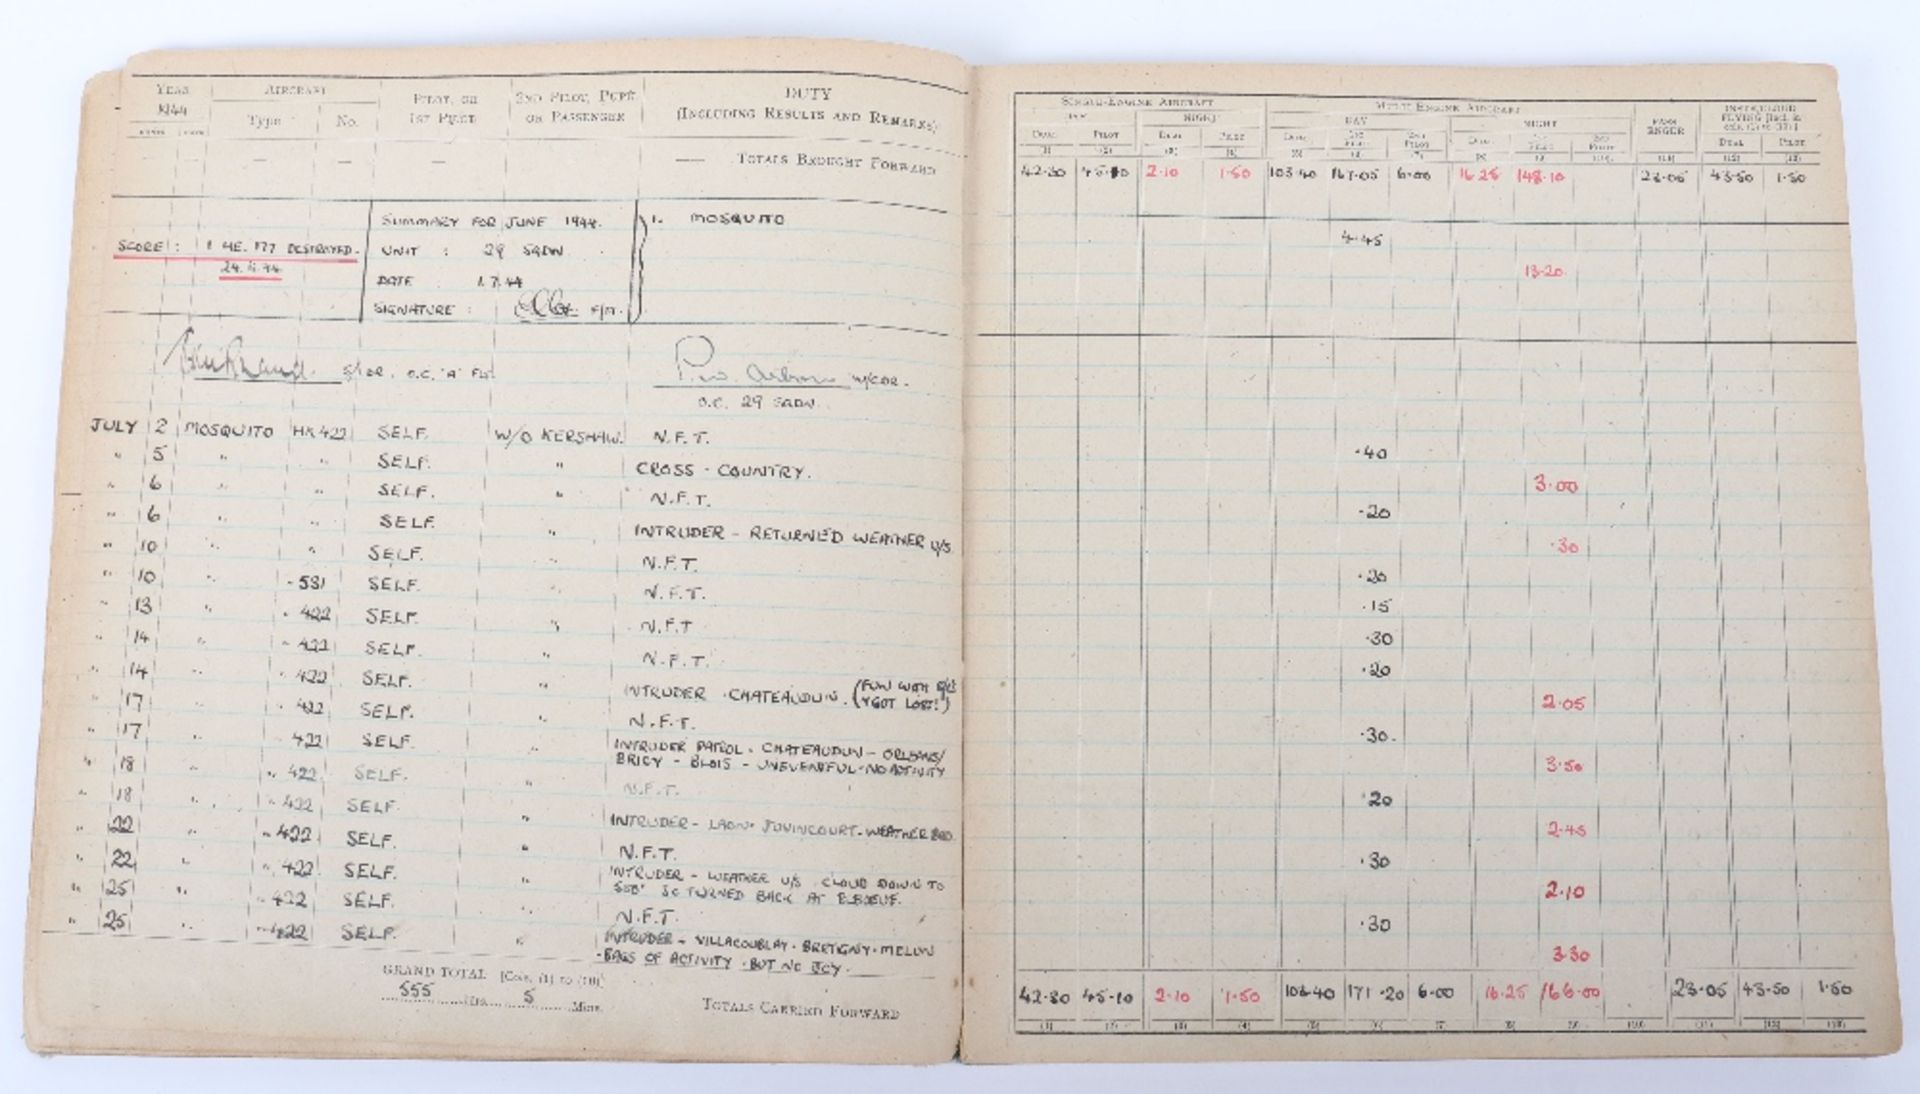 YEAR AIRCRAFT PILOT, OR 2ND PILOT, PUPIL DUTY
1944 Type No. 1ST PILOT OR PASSENGER (INCLUDING RESULTS AND REMARKS)
— — — — — TOTALS BROUGHT FORWARD
SUMMARY FOR JUNE 1944. 1. MOSQUITO
SCORE : 1 HE. 177 DESTROYED. UNIT : 29 SQDN
DATE 1.7.44
SIGNATURE : F/LT.
S/LDR. O.C. 'A' FLT W/CDR.
O.C. 29 SQDN.
JULY 2 MOSQUITO HK 422 SELF. W/O KERSHAW. N.F.T.
" 5 " " SELF. " CROSS - COUNTRY.
" 6 " " SELF. " N.F.T.
" 6 " " SELF. " INTRUDER - RETURNED WEATHER U/S.
" 10 " " SELF. " N.F.T.
" 10 " - 531 SELF. N.F.T.
" 13 " " 422 SELF. " N.F.T
" 14 " " 422 SELF. " N.F.T.
" 14 " " 422 SELF. " INTRUDER - CHATEAUDUN. (FUN WITH
GOT LOST!)
" 17 " 422 SELF. " N.F.T.
17 422 SELF. " INTRUDER PATROL. CHATEAUDUN - ORLEANS/
BRICY - BLOIS - UNEVENTFUL - NO ACTIVITY
" 18 " " 422 SELF. " N.F.T.
" 18 " " 422 SELF. " INTRUDER - LAON. JUVINCOURT - WEATHER BAD.
" 22 " " 422 SELF. " N.F.T.
" 22 " " 422 SELF. " INTRUDER - WEATHER U/S CLOUD DOWN TO
500' SO TURNED BACK AT ELBOEUF.
" 25 " " 422 SELF. N.F.T.
" 25 " " 422 SELF. " INTRUDER - VILLACOUBLAY - BRETIGNY - MELUN
- BAGS OF ACTIVITY - BUT NO JOY.
GRAND TOTAL [Cols. (1) to (10)]
555 Hrs. 5 Mins. TOTALS CARRIED FORWARD
SINGLE-ENGINE AIRCRAFT MULTI-ENGINE AIRCRAFT PASSENGER INSTR/CLOUD FLYING [Incl. in cols. (1) to (10)]
DAY NIGHT DAY NIGHT
DUAL PILOT DUAL PILOT DUAL 1ST PILOT 2ND PILOT DUAL 1ST PILOT 2ND PILOT DUAL PILOT
(1) (2) (3) (4) (5) (6) (7) (8) (9) (10) (11) (12) (13)
42.30 45.10 2.10 1.50 103.40 167.05 6.00 16.25 148.10 23.05 43.50 1.50
4.45
13.20
.40
3.00
.20
.30
.20
.15
.30
.20
2.05
.30.
3.50
.20
2.45
.30
2.10
.30
3.30
42.30 45.10 2.10 1.50 103.40 171.20 6.00 16.25 166.00 23.05 43.50 1.50
(1) (2) (3) (4) (5) (6) (7) (8) (9) (10) (11) (12) (13)